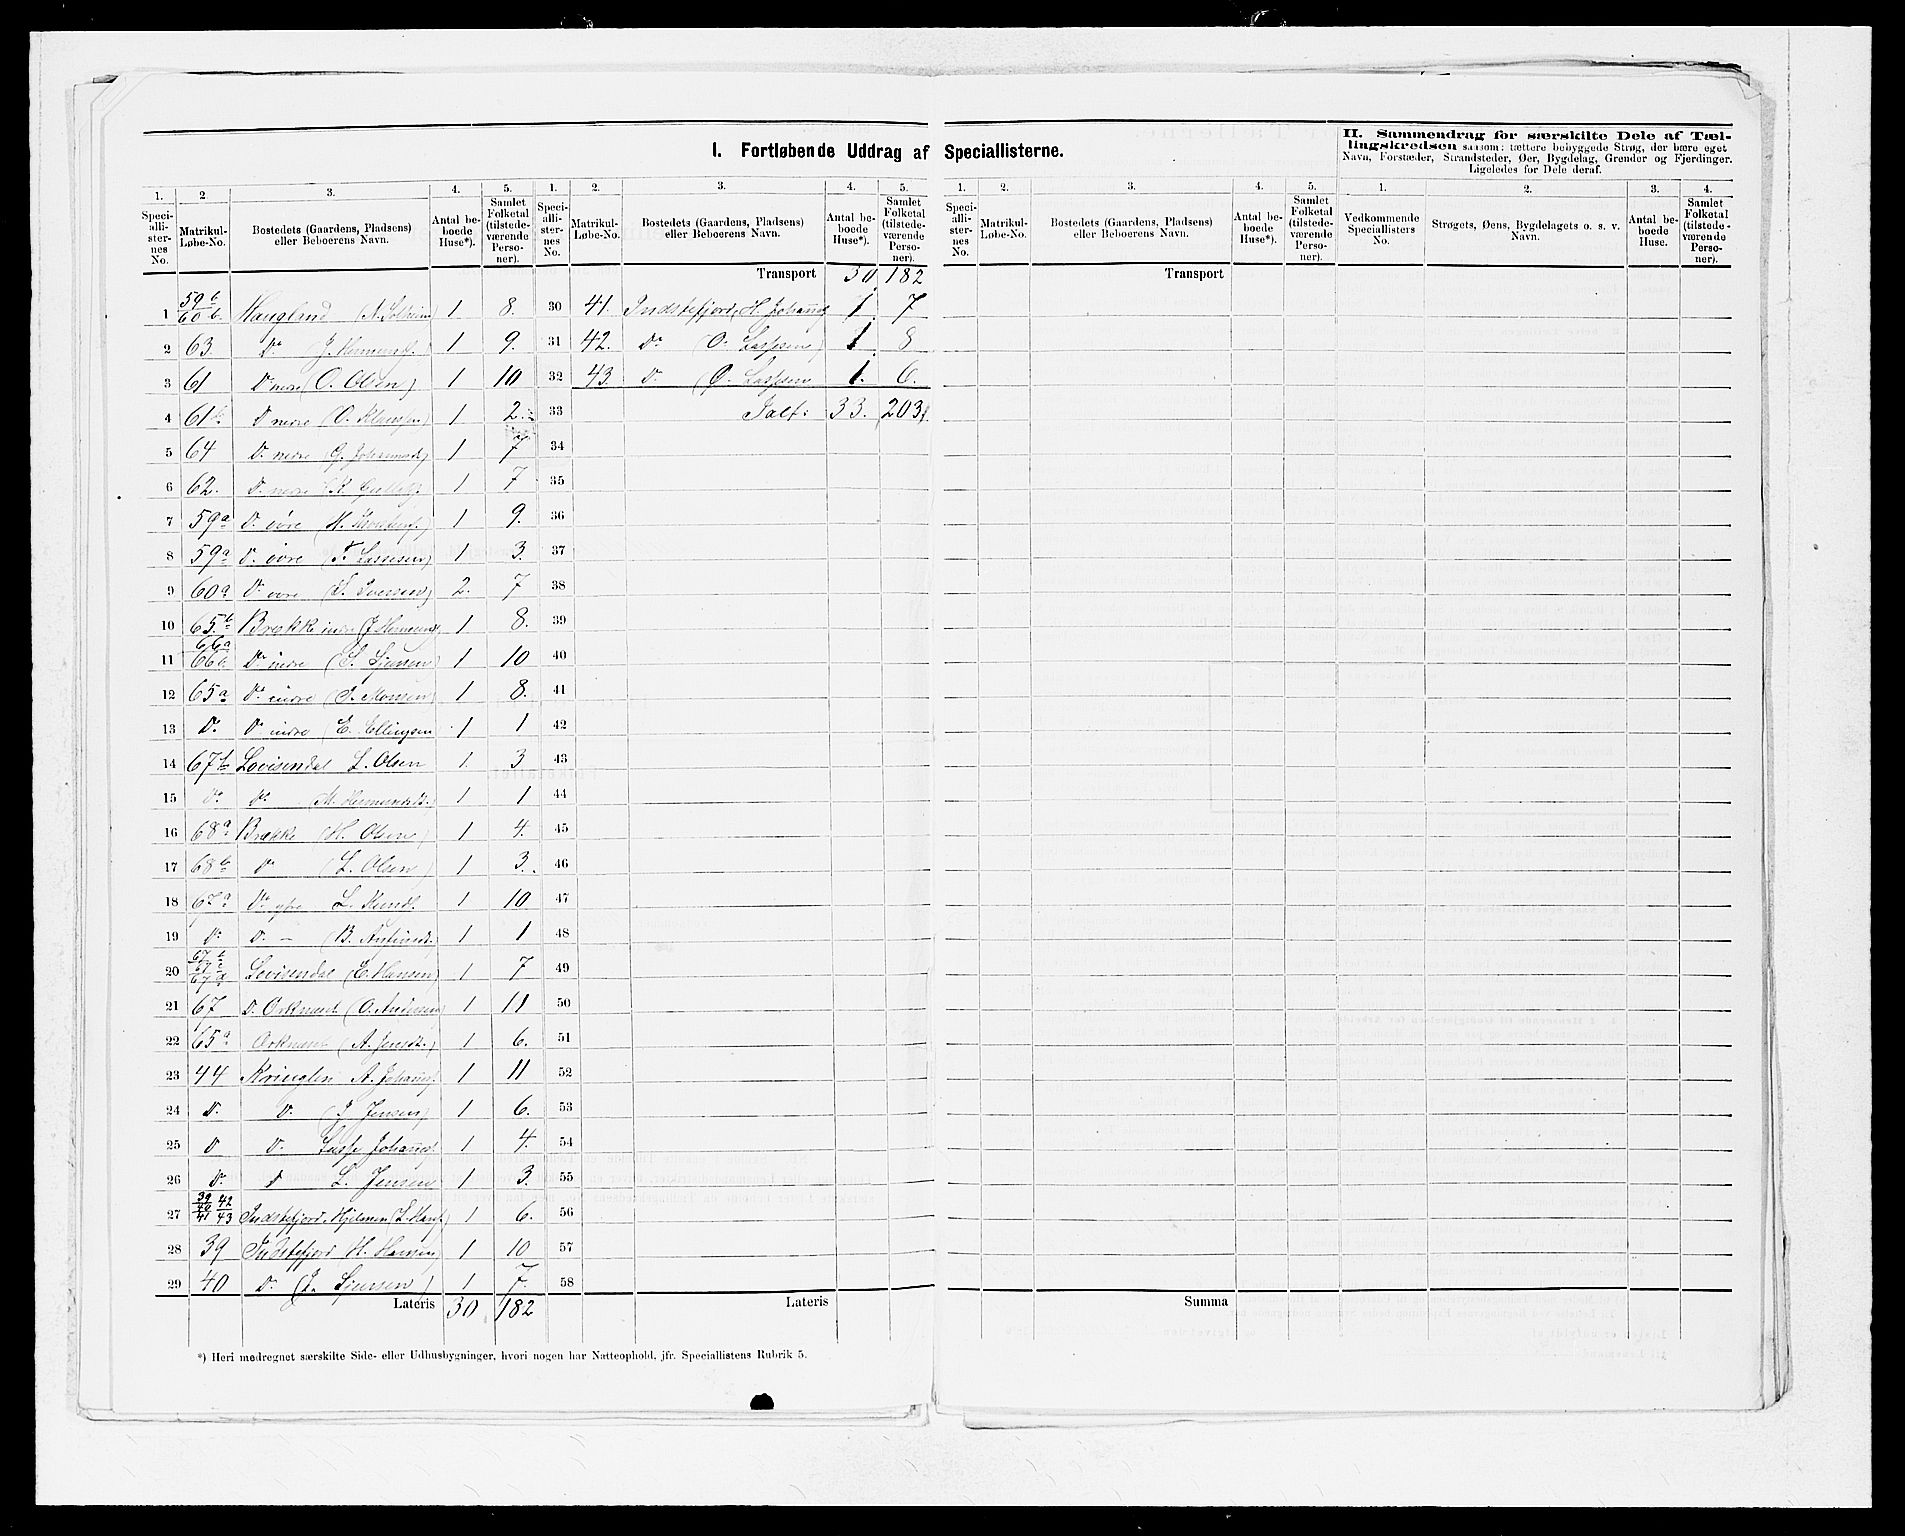 I. Fortløbende Uddrag af Speciallisterne.
II. Sammendrag for særskilte Dele af Tæl-
lingskredsen saasom: tættere bebyggede Strøg, der bære eget
Navn, Forstæder, Strandsteder, Øer, Bygdelag, Grender og Fjerdinger.
Ligeledes for Dele deraf.
1. 2 3. 4. 5. 1. 2. 3. 4. 5. 1. 2. 3. 4. 5. 1. 2. 3. 4.
Speci-alli-ster-nes No. Matrikul-Løbe-No. Bostedets (Gaardens, Pladsens) eller Beboerens Navn. Antal be-boede Huse*). Samlet Folketal (tilstede-værende Perso-ner).
Speci-alli-ster-nes No. Matrikul-Løbe-No. Bostedets (Gaardens, Pladsens) eller Beboerens Navn. Antal be-boede Huse*). Samlet Folketal (tilstede-værende Perso-ner).
Speci-alli-ster-nes No. Matrikul-Løbe-No. Bostedets (Gaardens, Pladsens) eller Beboerens Navn. Antal be-boede Huse*). Samlet Folketal (tilstede-værende Perso-ner).
Vedkommende Speciallisters No. Strøgets, Øens, Bygdelagets o. s. v. Navn. Antal be-boede Huse. Samlet Folketal (tilstede-værende Perso-ner).
1 59b 60b. Haugland (A. Solheim) 1 8.
2 63. Do 1 9.
3 61 Do nedre (O. Olsen) 1 10
4 61b D nedre (O. Klausen) 1 2.
5 64 Do nedre 1 7
6 62. Do nedre 1 7
7 59a Do øvre 1 9.
8 59a Do øvre (T. Lassesen) 1 3.
9 60a Do øvre (S. Iversen) 2. 7
10 65.b Brække indre 1 8.
11 66a 66b Do indre (S. Sjursen) 1 10
12 65a Do indre (I. Monsen) 1 8.
13 Do Do indre (E. Ellingsen 1 1
14 67b Lovisendal L. Olsen 1. 3
15 Do Do 1 1
16 68a Brække (H. Olsen) 1 4.
17 68b Do (L. Olsen) 1 3.
18 67a Do ytre L. Knuds. 1 10
19 Do Do — 1 1
20 Lovisendal (E. Hansen) 1 7
21 67 Do Orknæset (O. Andersen 1 11
22 65a Orknæset 1 6.
23 44 Kringlen A. Johans. 1 11
24 Do Do (J Jensen) 1 6.
25 D Do Lasse Johans. 1 4.
26 Do D L. Jensen 1 3.
27 39 40 41 42 43 Indstefjord, Hjelmen (L. Hans.) 1 6.
28 39 Indstefjord H. Hansen 1 10
29 40 Do (I. Sjursen) 1 7.
Lateris 30 182
Transport 30 182
30 41. Indstefjord, (H. Johans 1. 7
31 42. Do (O. Lassesen) 1. 8
32 43. D. (O. Lassesen 1. 6.
33 Ialt: 33. 203
34
35
36
37
38
39
40
41
42
43
44
45
46
47
48
49
50
51
52
53
54
55
56
57
58
Lateris
Transport
Summa
*) Heri medregnet særskilte Side- eller Udhusbygninger, hvori nogen har Natteophold, jfr. Speciallistens Rubrik 5.